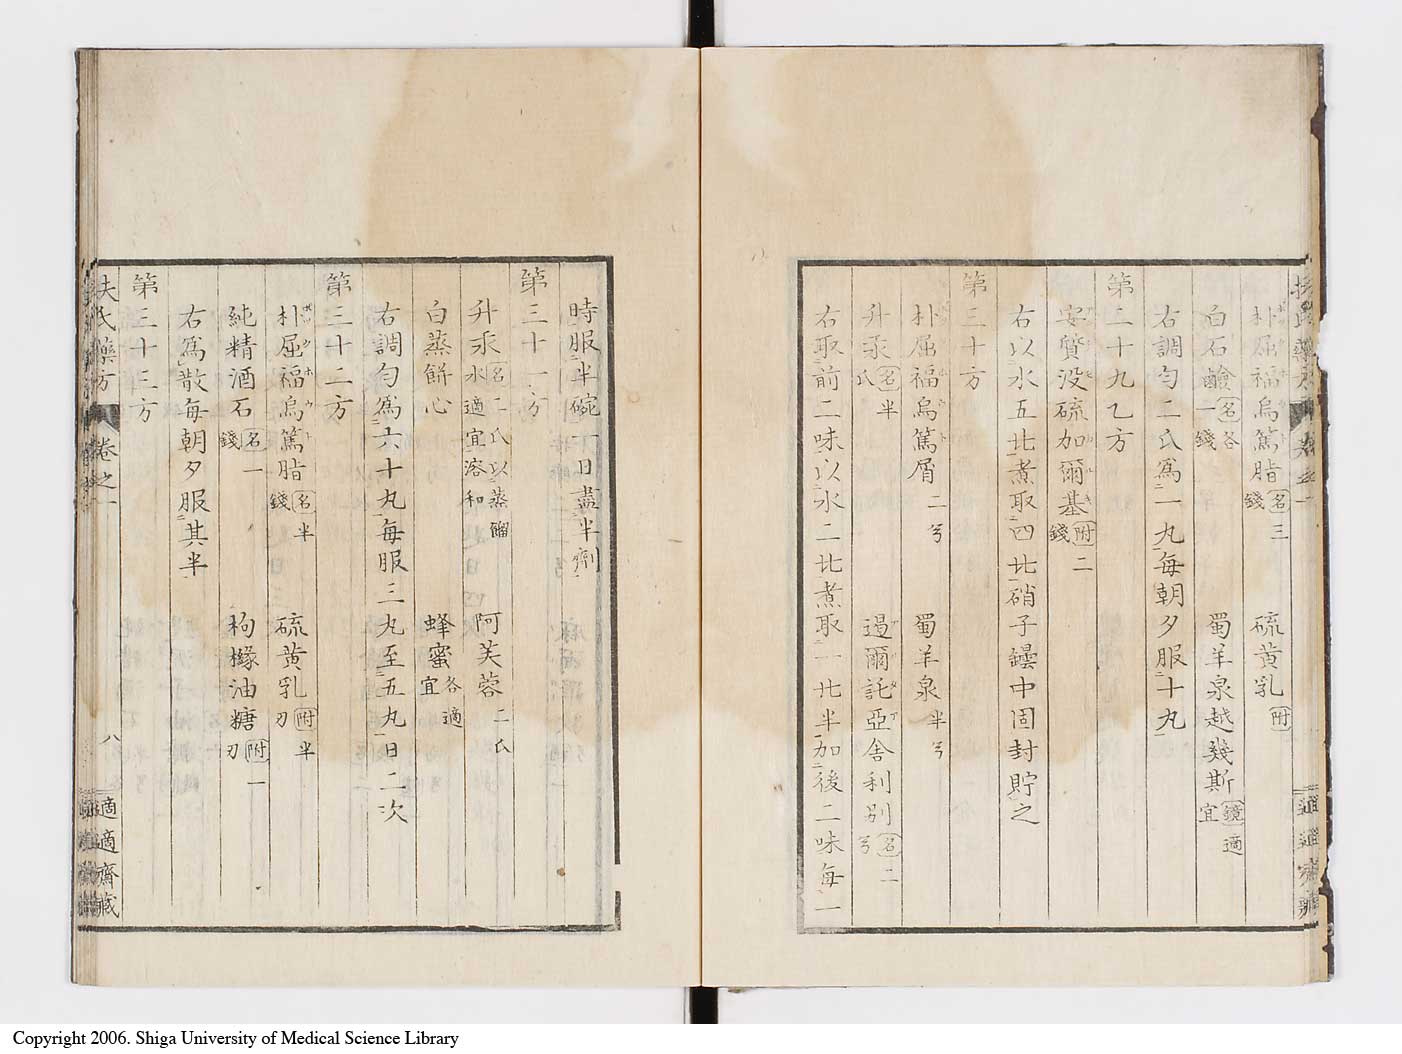 朴屈福烏篤脂 名 三錢 硫黄乳 附
白石鹼 名 各一錢 蜀羊泉越幾斯 鏡 適宜
右調勻二氏爲一丸每朝夕服十丸
第二十九乙方
安質没硫加爾基 附 二錢
右以水五比煮取四比硝子罎中固封貯之
第三十方
朴屈福烏篤屑 二兮 蜀羊泉 半兮
升汞 名 半氏 過爾託亞舍利別 名 二兮
右取前二味以水二比煮取一比半加後二味每一
時服半碗一日盡半劑
第三十一方
升汞 名 二氏以蒸餾水適宜溶和 阿芙蓉 二氏
白蒸餅心 蜂蜜 各適宜
右調勻爲六十丸每服三丸至五丸日二次
第三十二方
朴屈福烏篤脂 名 半錢 硫黄乳 附 半刃
純精酒石 名 一錢 枸櫞油糖 附 一刃
右爲散每朝夕服其半
第三十三方
扶氏藥方 卷之一 八 適適齋藏
Copyright 2006. Shiga University of Medical Science Library